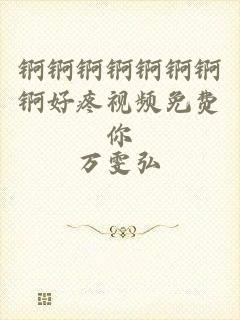 锕锕锕锕锕锕锕
锕好疼视频免费
你
万雯弘